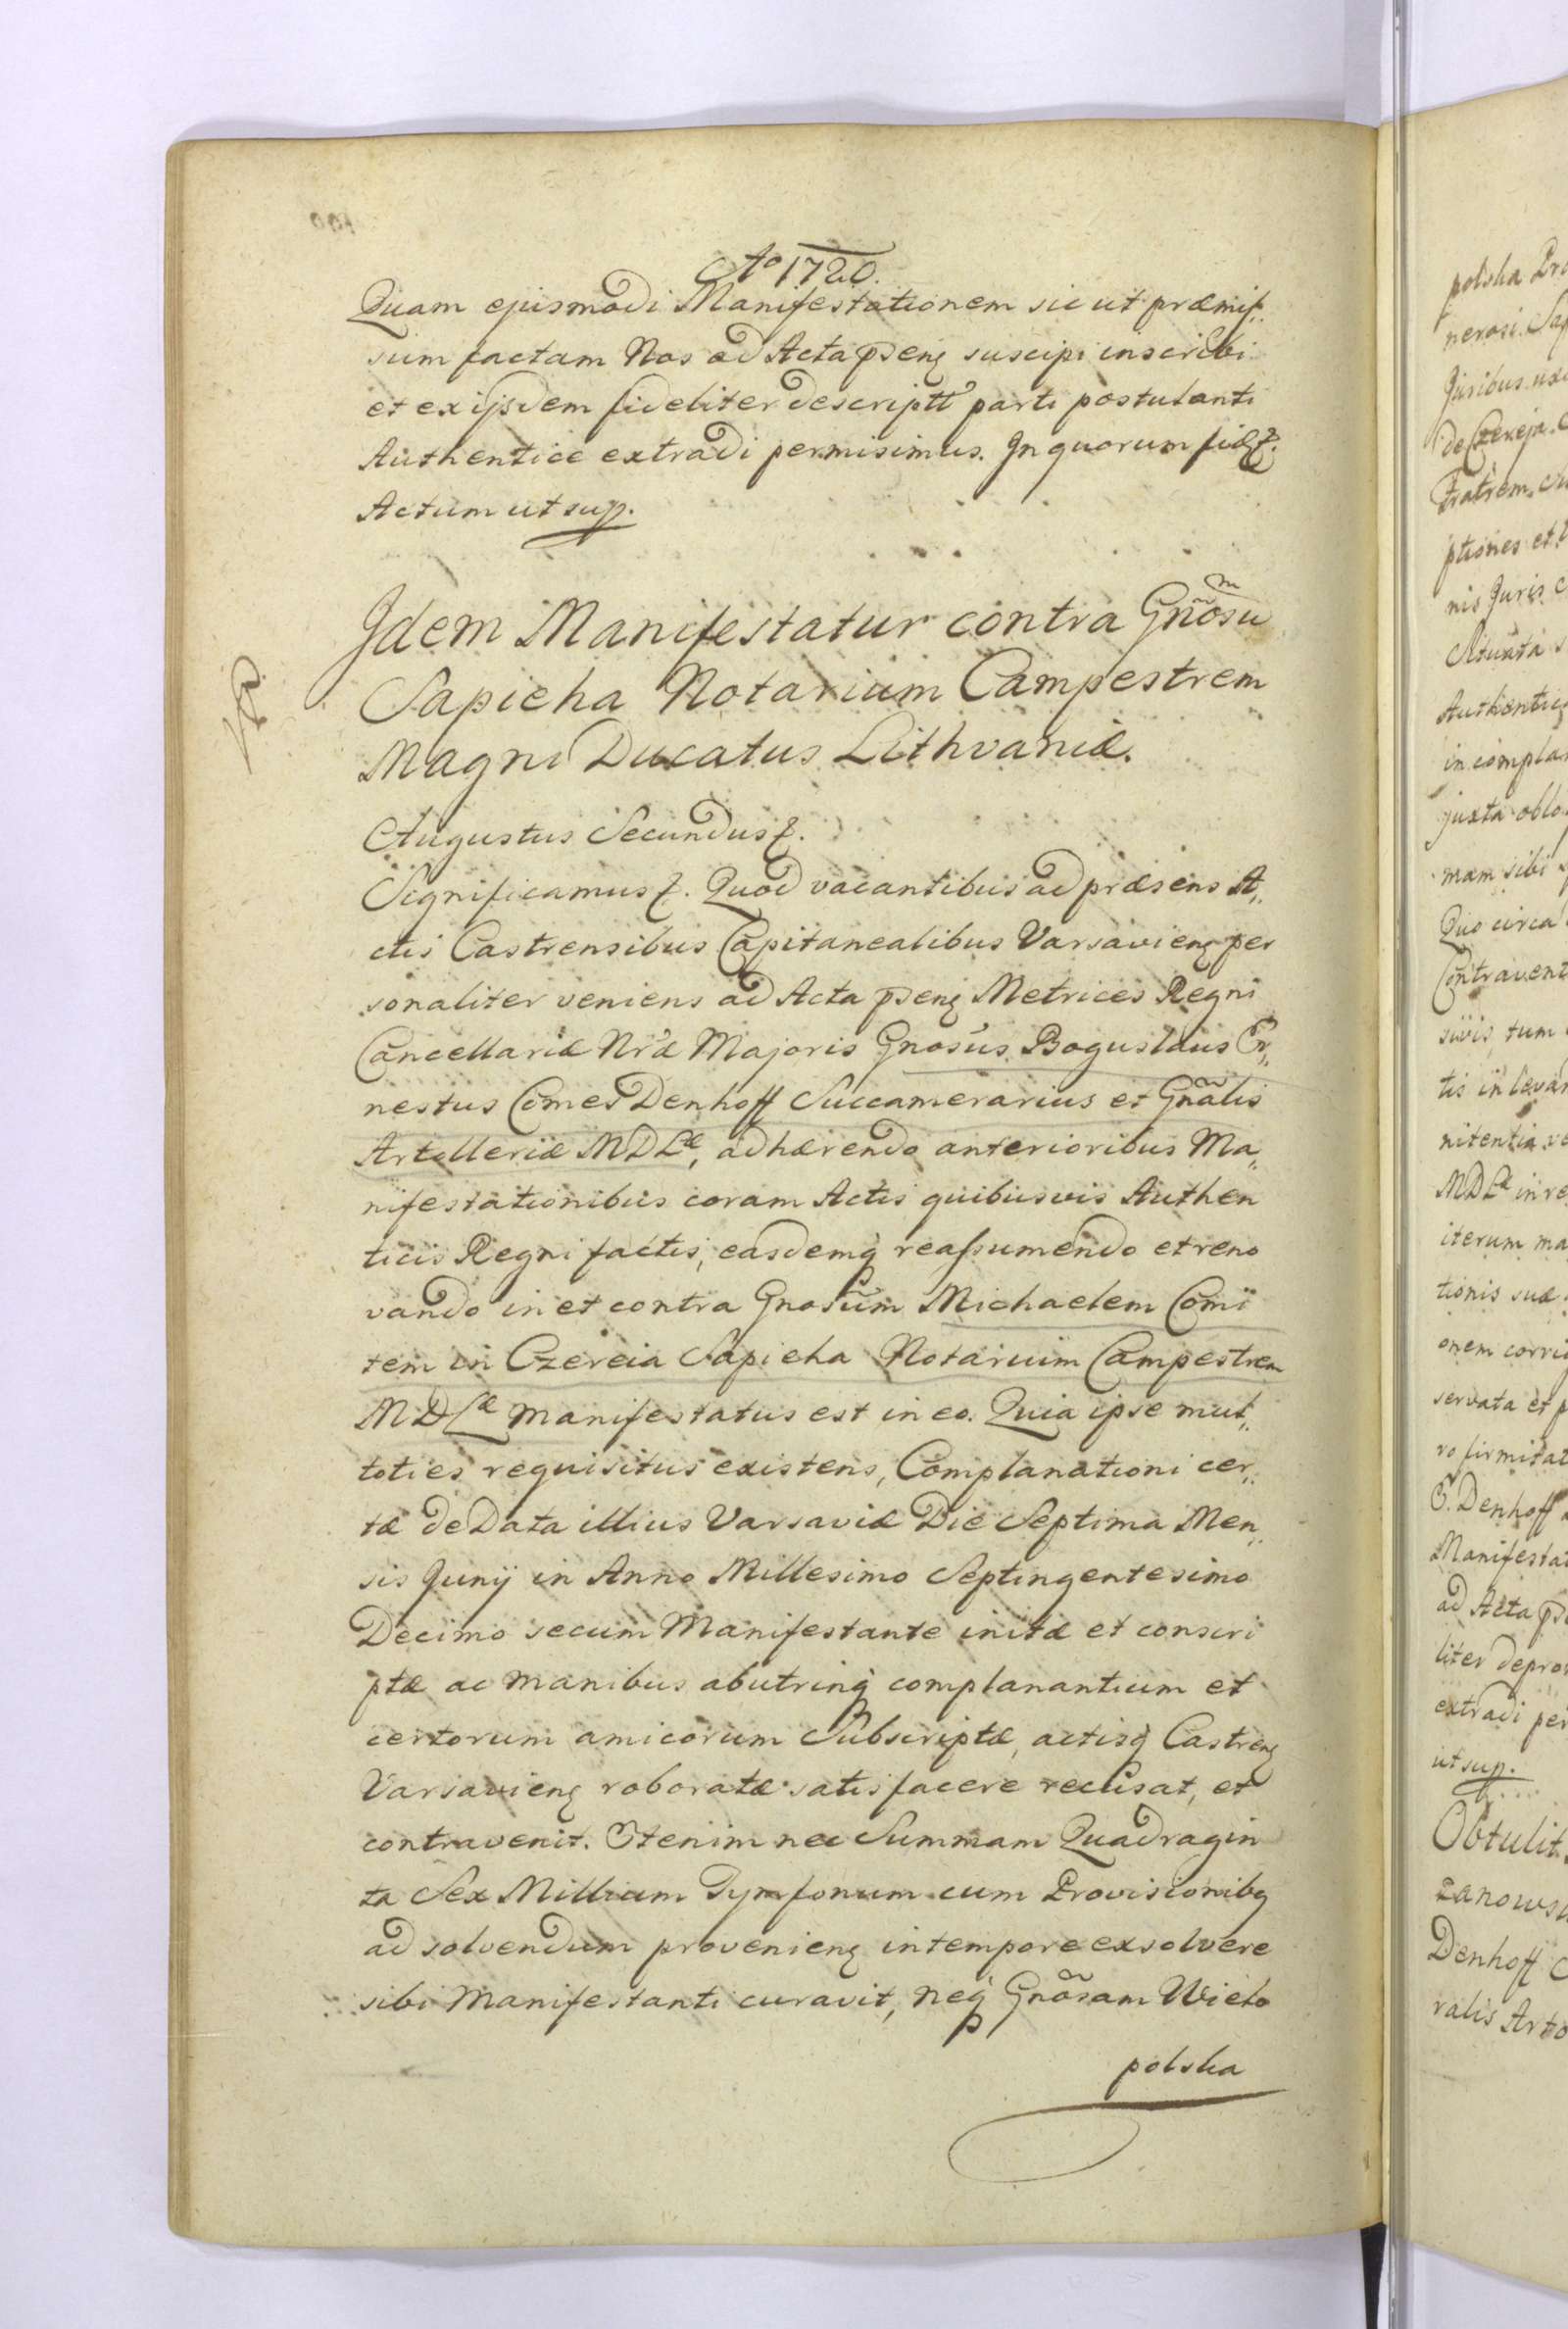 Ao 1720.
Quam ejusmodi Manifestationem sic ut præmis„
sum factam Nos ad Acta pñsenz suscipi inscribi
et ex ijsdem fideliter descriptt parti postulanti
Authentice extradi permisimus. In quorum fidez.
Actum ut sup.
Idem Manifestatur contra Gnõsum
Sapieha Notarium Campestrem
Magni Ducatus Lithvaniæ.
Augustus Secundus z.
Significamus z. Quod vacantibus ad præsens A„
ctis Castrensibus Capitanealibus Varsavienz per
sonaliter veniens ad Acta pñsenz Metrices Regni
Cancellariæ Nræ Majoris Gnosus Boguslaus Er„
nestus Comes Denhoff Succamerarius et Gnãlis
Artilleriæ MDLæ, adhærendo anterioribus Ma„
nifestationibus coram Actis quibusvis Authen
ticis Regni factis, easdemq reassumendo et reno
vando in et contra Gnosum Michaelem Comi
tem in Czereia Sapieha Notarium Campestrem
MDLæ manifestatus est in eo. Quia ipse mul„
toties requisitus existens, Complanationi cer„
tæ de Data illius Varsaviæ Die Septima Men„
sis Junij in Anno Millesimo Septingentesimo
Decimo secum Manifestante initæ et conscri
ptæ ac manibus abutrinq complanantium et
certorum amicorum Subscriptæ, actisq Castrenz
Varsavienz roboratæ satisfacere recusat, et
contravenit. Etenim nec Summam Quadragin
ta Sex Millium Tymfonum cum Provisionibq
ad solvendum provenienz in tempore exsolvere
sibi Manifestanti curavit, neq Gnõsam Wielo
polska
polska
nerosi
Juribus
de Czereja.
Fratrem
ptiones et
nis Juris
Authentic
in compla
juxta oblo
mam sibi
Quo circa
Contravent
suis, tum
nitentia
MDLæ in re
iterum ma
tionis suæ
onem corri
servata et p
ro firmitat
G. Denhoff
Manifestat
ad Acta
liter depro
extradi per
ut sup.
Obtulit
zanows
Denhoff C
ralis Arti